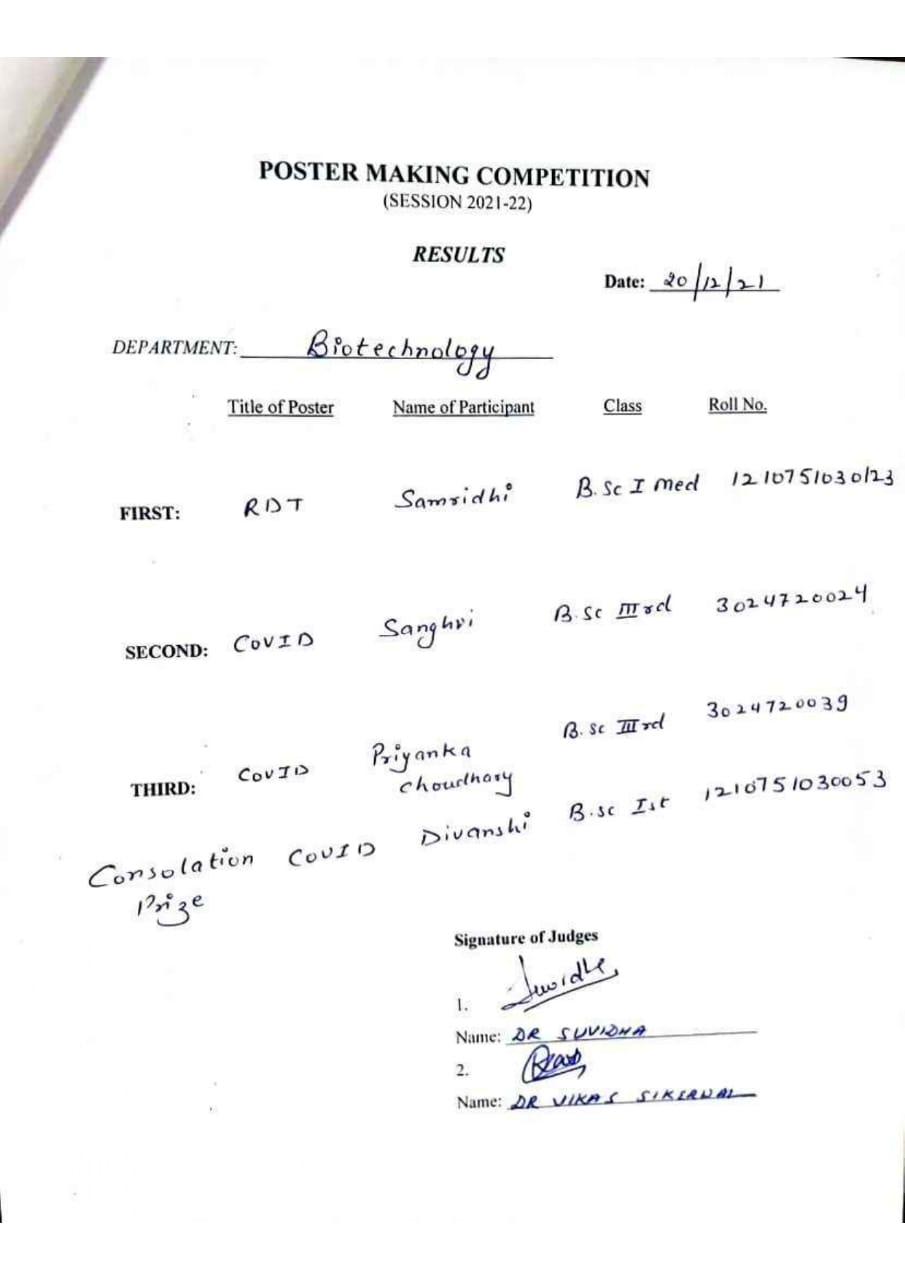 POSTER MAKING COMPETITION
(SESSION 2021-22)
RESULTS
Date: 20/12/21
DEPARTMENT: Biotechnology
Title of Poster Name of Participant Class Roll No.
FIRST: RDT Samridhi B.Sc I med 1210751030123
SECOND: COVID Sanghvi B.Sc IIIrd 3024720024
THIRD: COVID Priyanka Choudhary B.Sc IIIrd 3024720039
Consolation Prize COVID Divanshi B.Sc Ist 1210751030053
Signature of Judges
1. Suvidha
Name: DR SUVIDHA
2.
Name: DR VIKAS